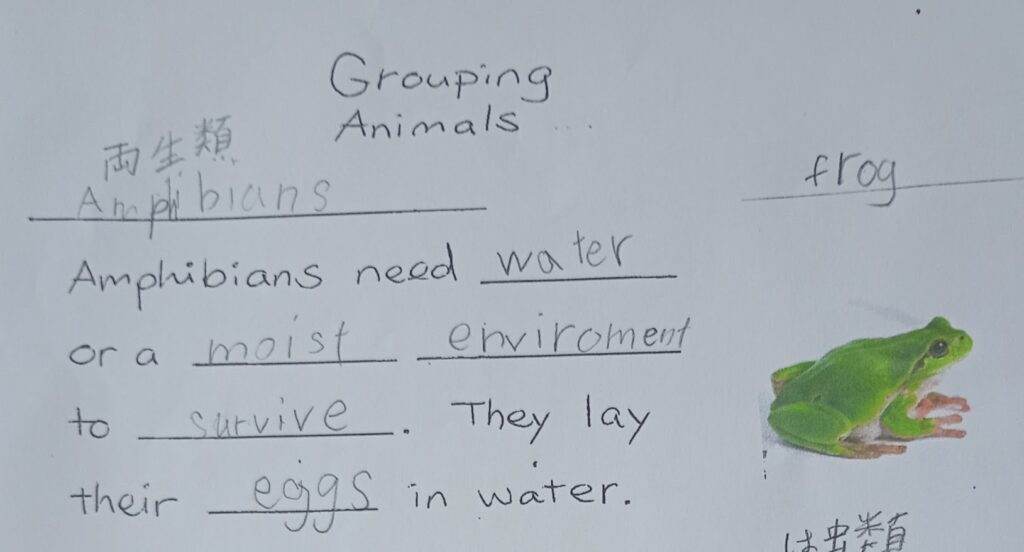 Grouping
Animals
両生類
Amphibians
frog
Amphibians need water
or a moist enviroment
to survive. They lay
their eggs in water.
は虫類